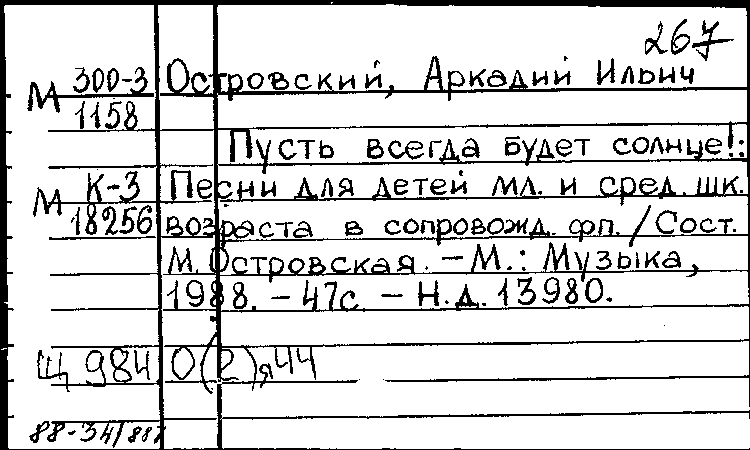 267
М 300-3 Островский, Аркадий Ильич
1158
Пусть всегда будет солнце!:
М К-3 Песни для детей мл. и сред. шк.
18256 возраста в сопровожд. фп. / Сост.
М. Островская. – М.: Музыка,
1988. – 47с. – Н.д. 13980.
Щ 984.0(2)я44
88-34/887